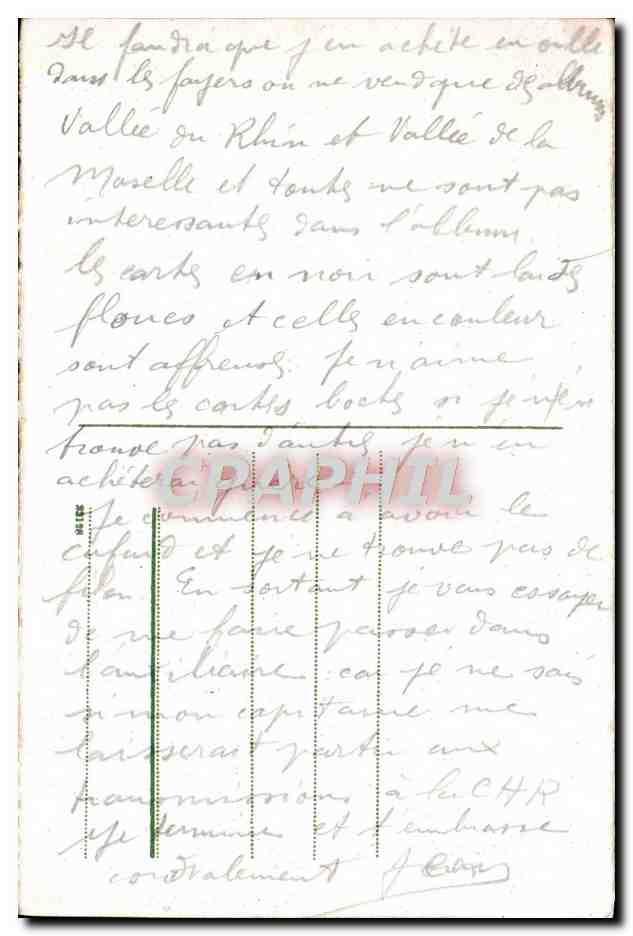 Il faudra que j'en achète en ville
dans les foyers on ne vend que des albums
Vallée du Rhin et Vallée de la
Moselle et toutes ne sont pas
interessantes dans l'album.
les cartes en noir sont laides
floues et celles en couleur
sont affreuses. Je n'aime
pas les cartes boches si je n'en
trouve pas d'autres je n'en
achéterai
CPARAMA
Je commence a avoir le
33198
cafard et je ne trouve pas de
filon. En sortant je vais essayer
de me faire passer dans
l'auxiliaire car je ne sais
si mon capitaine me
laisserait partir aux
transmissions à la CHR
Je termine et t'embrasse
cordialement Jean